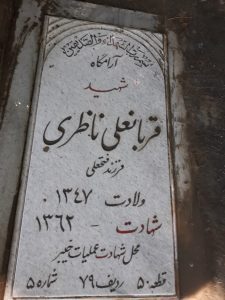 آرامگاه
شهید
قربانعلی ناظری
فرزند فتحعلی
ولادت ۱۳۴۷
شهادت - ۱۳۶۲
محل شهادت عملیات خیبر
قطعه ۵۰ ردیف ۷۹ شماره ۵